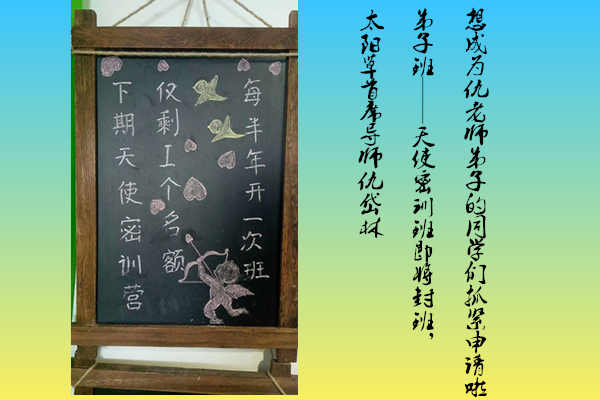 想成为仇老师弟子的同学们抓紧申请啦
弟子班——天使密训班即将封班，
太阳草首席导师仇岱林
每半年开一次班
仅剩工个名额
下期天使密训营